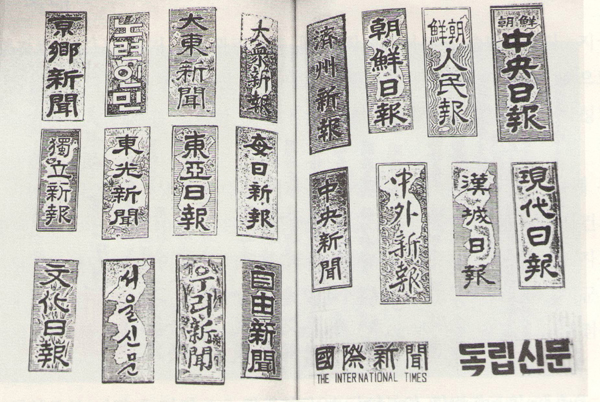 京鄕新聞
노력인민
大東新聞
大衆新報
獨立新報
東光新聞
東亞日報
每日新報
文化日報
서울신문
우리新聞
自由新聞
濟州新報
朝鮮日報
朝鮮
人民報
朝鮮
中央日報
中央新聞
中外新報
漢城日報
現代日報
國際新聞
THE INTERNATIONAL TIMES
독립신문